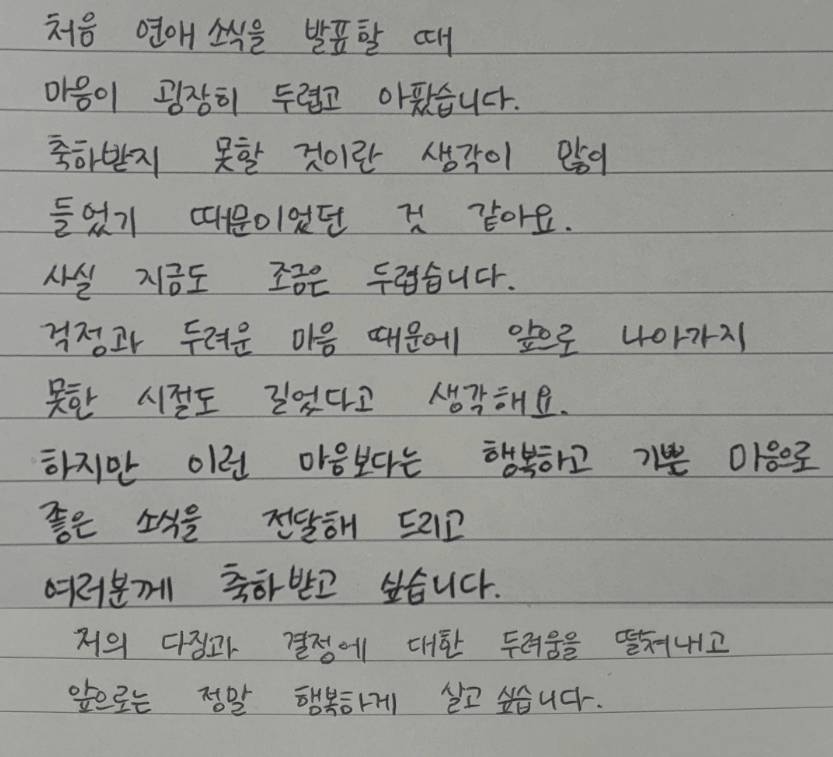 처음 연애 소식을 발표할 때
마음이 굉장히 두렵고 아팠습니다.
축하받지 못할 것이란 생각이 많이
들었기 때문이었던 것 같아요.
사실 지금도 조금은 두렵습니다.
걱정과 두려운 마음 때문에 앞으로 나아가지
못한 시절도 길었다고 생각해요.
하지만 이런 마음보다는 행복하고 기쁜 마음으로
좋은 소식을 전달해 드리고
여러분께 축하받고 싶습니다.
저의 다짐과 결정에 대한 두려움을 떨쳐내고
앞으로는 정말 행복하게 살고 싶습니다.